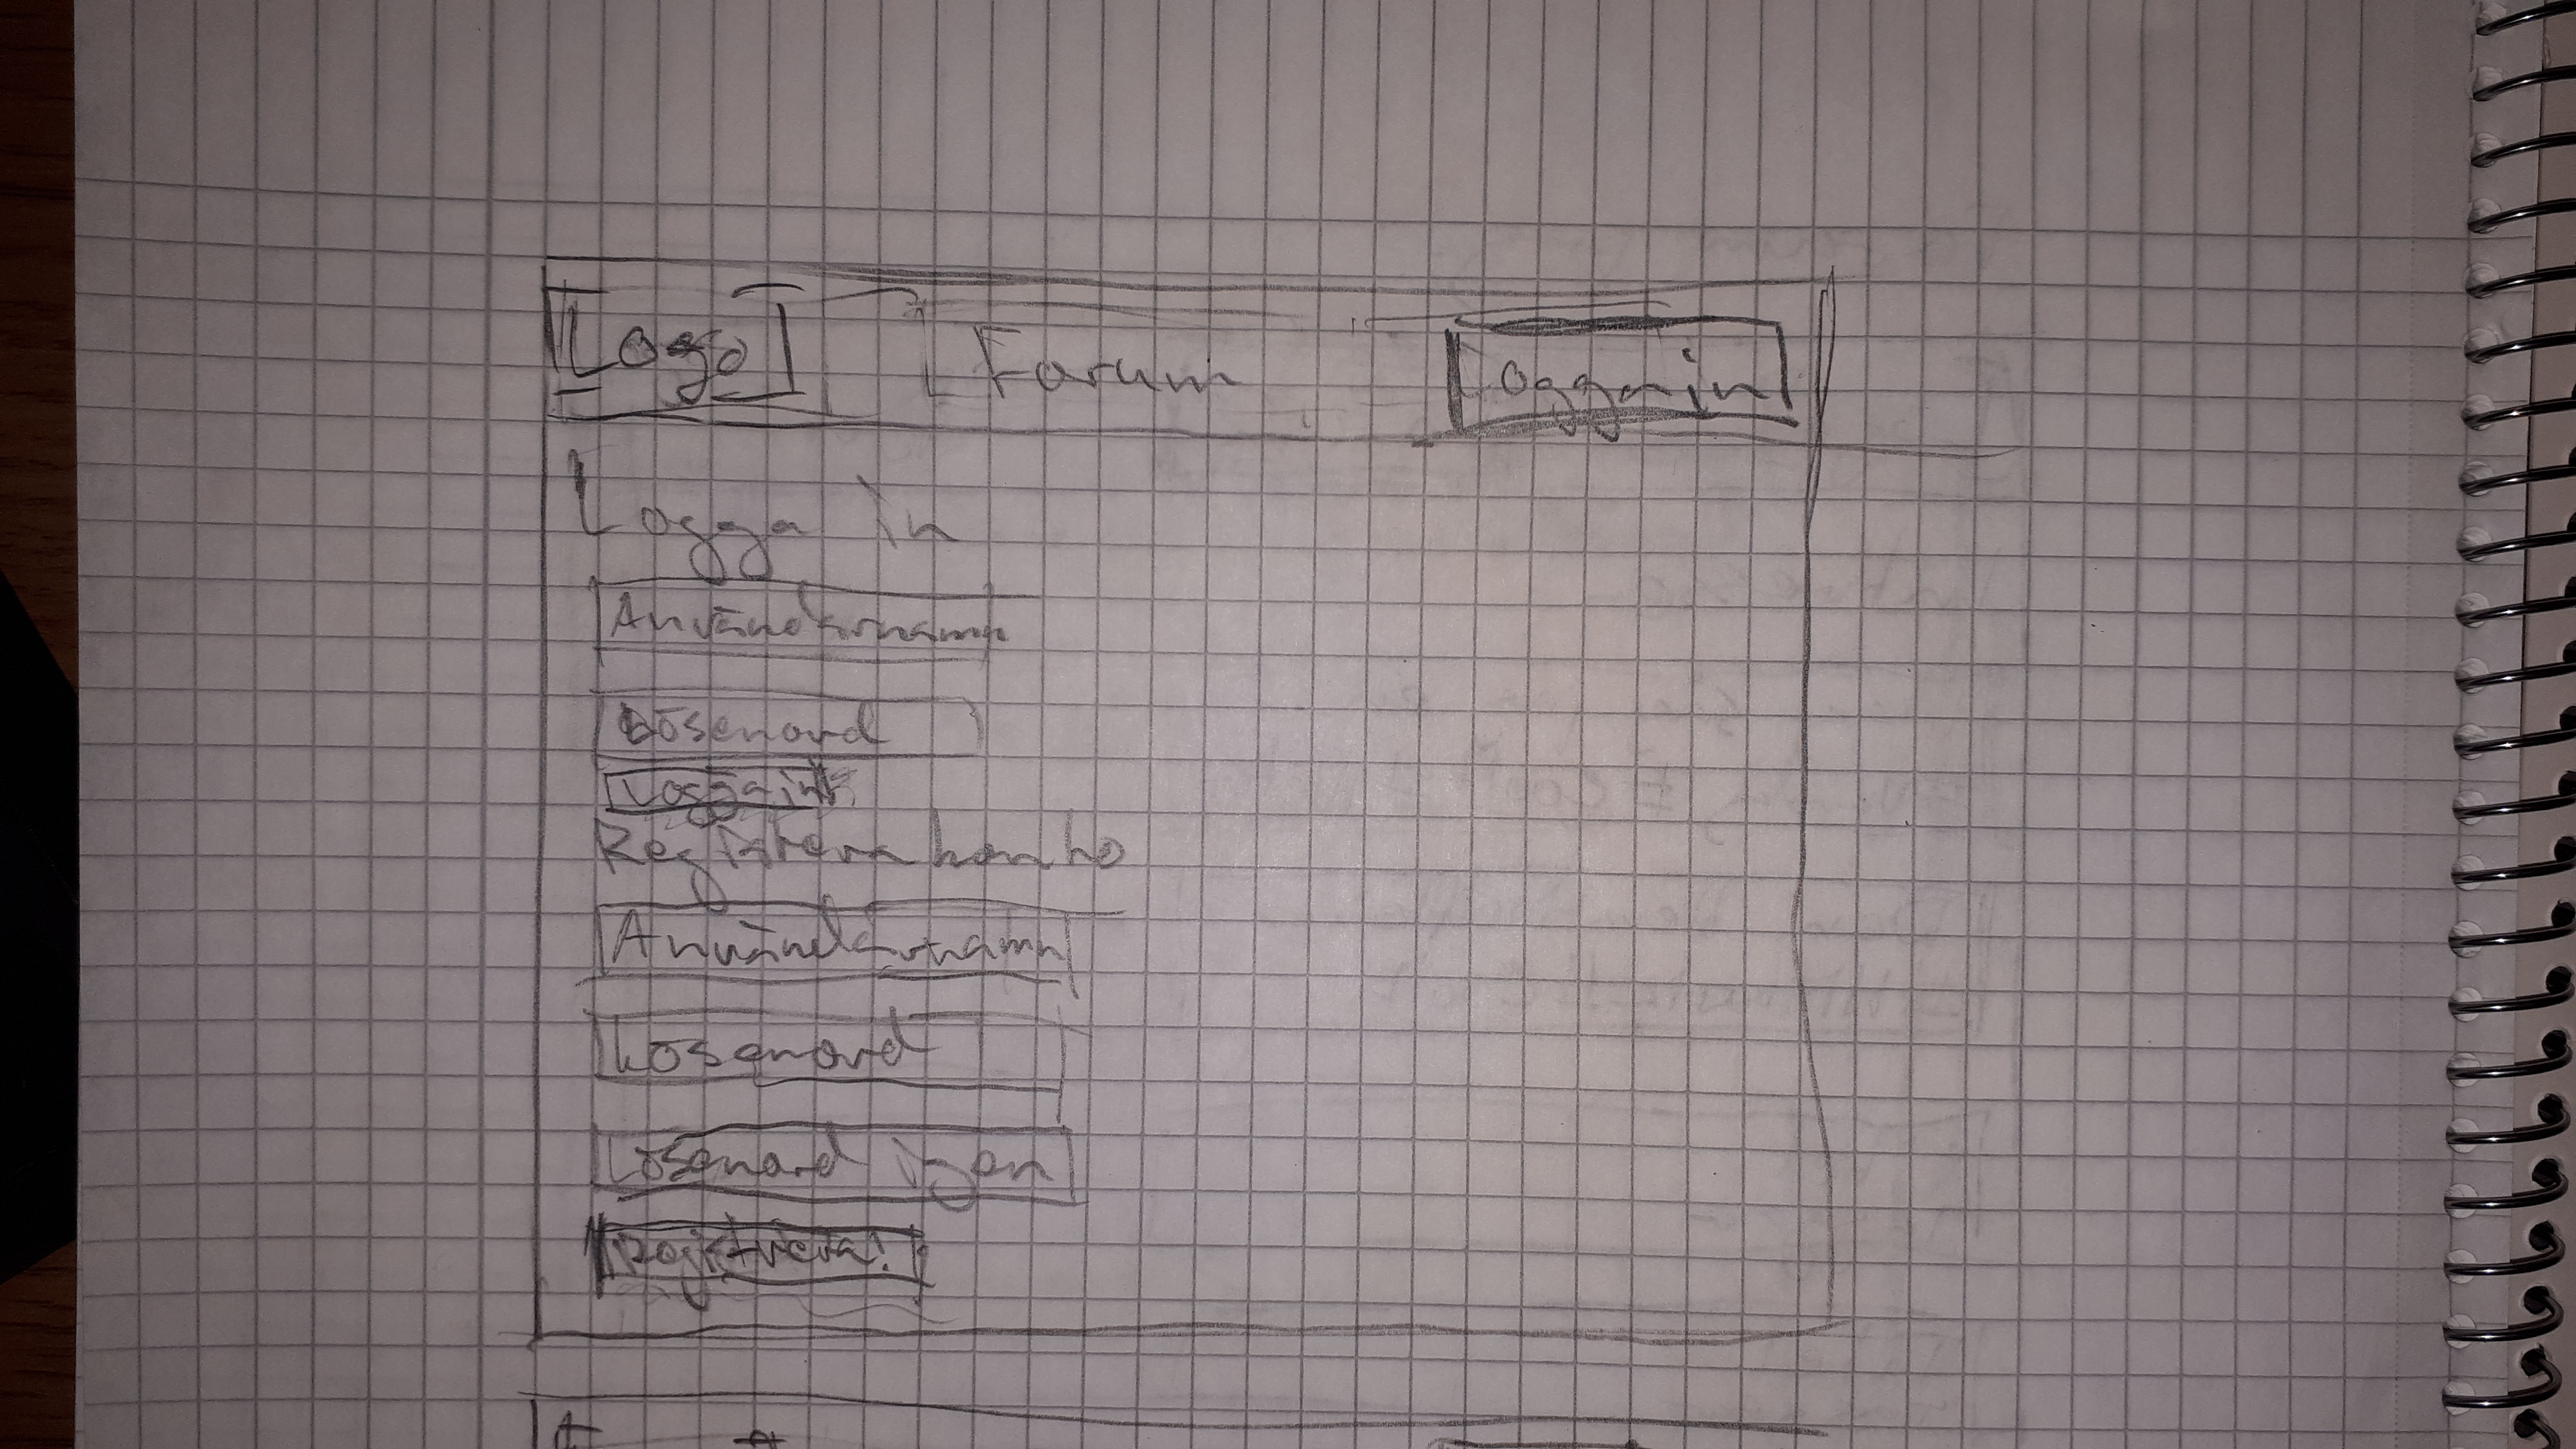 Logo Forum Logga in
Logga in
Användarnamn
Lösenord
Logga in
Registrera konto
Användarnamn
Lösenord
Lösenord igen
Registrera!